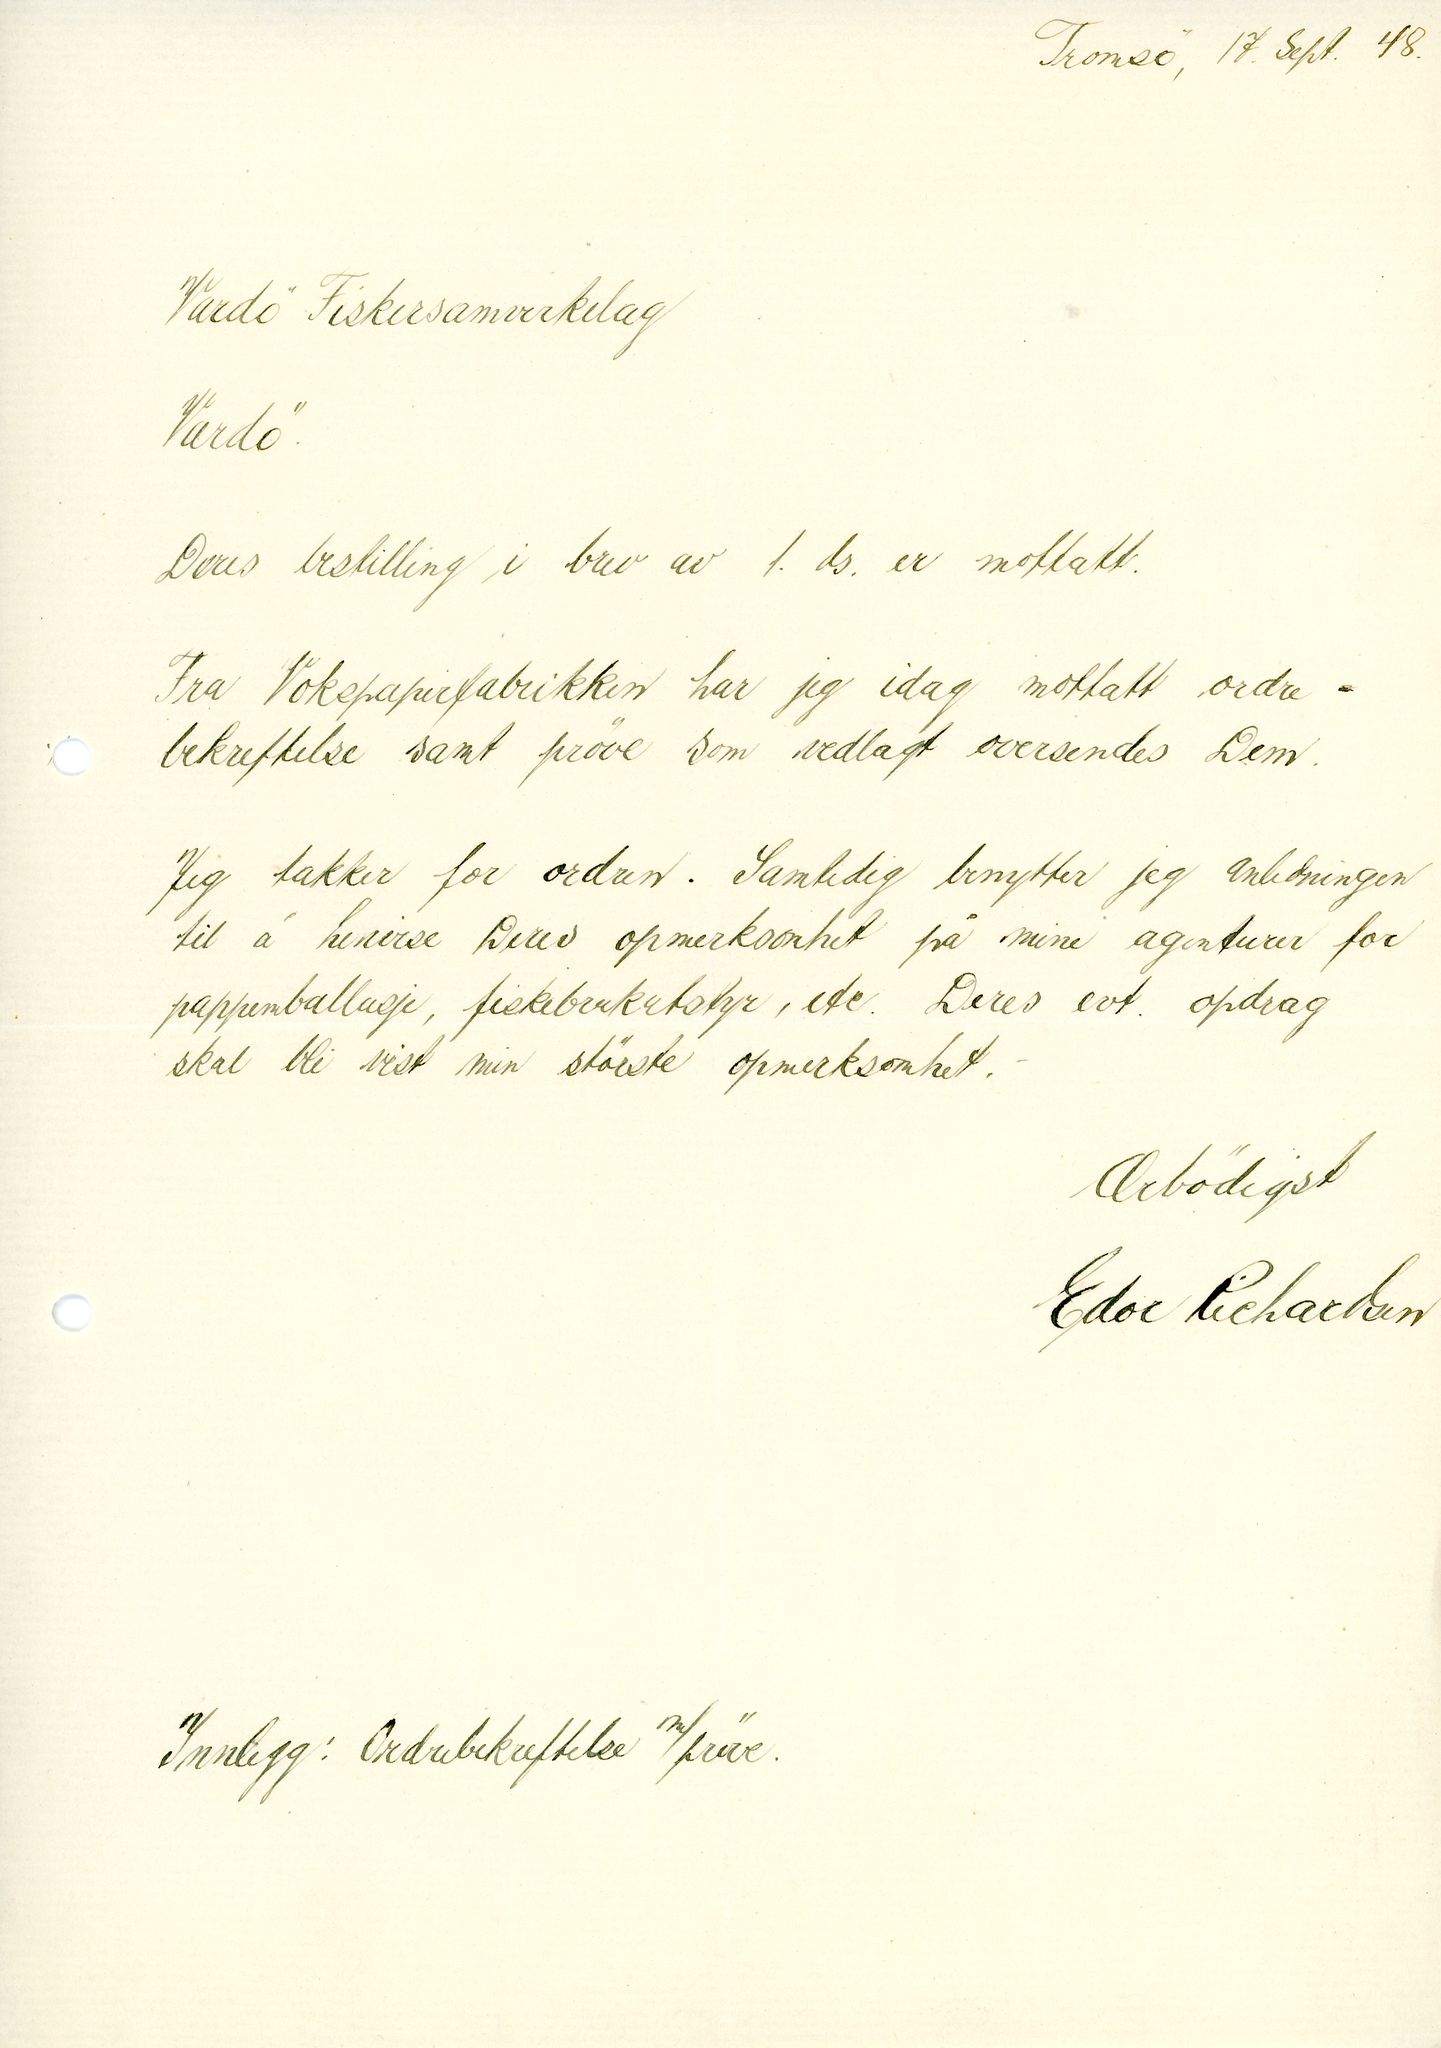 Tromsö, 17. Sept. 48.
Vardö Fiskersamvirkelag
Vardö.
Deres bestilling i brev av 1. ds. er mottatt.
Fra Vokspapirfabrikken har jeg idag mottatt ordre-
bekreftelse samt pröve som vedlagt oversendes Dem.
Jeg takker for ordren. Samtidig benytter jeg anledningen
til å henvise Deres opmerksomhet på mine agenturer for
pappemballasje, fiskebruksutstyr, etc. Deres evt. opdrag
skal bli vist min störste opmerksomhet.-
Ærbödigst
Edor Richardsen
Innlegg: Ordrebekreftelse m/pröve.